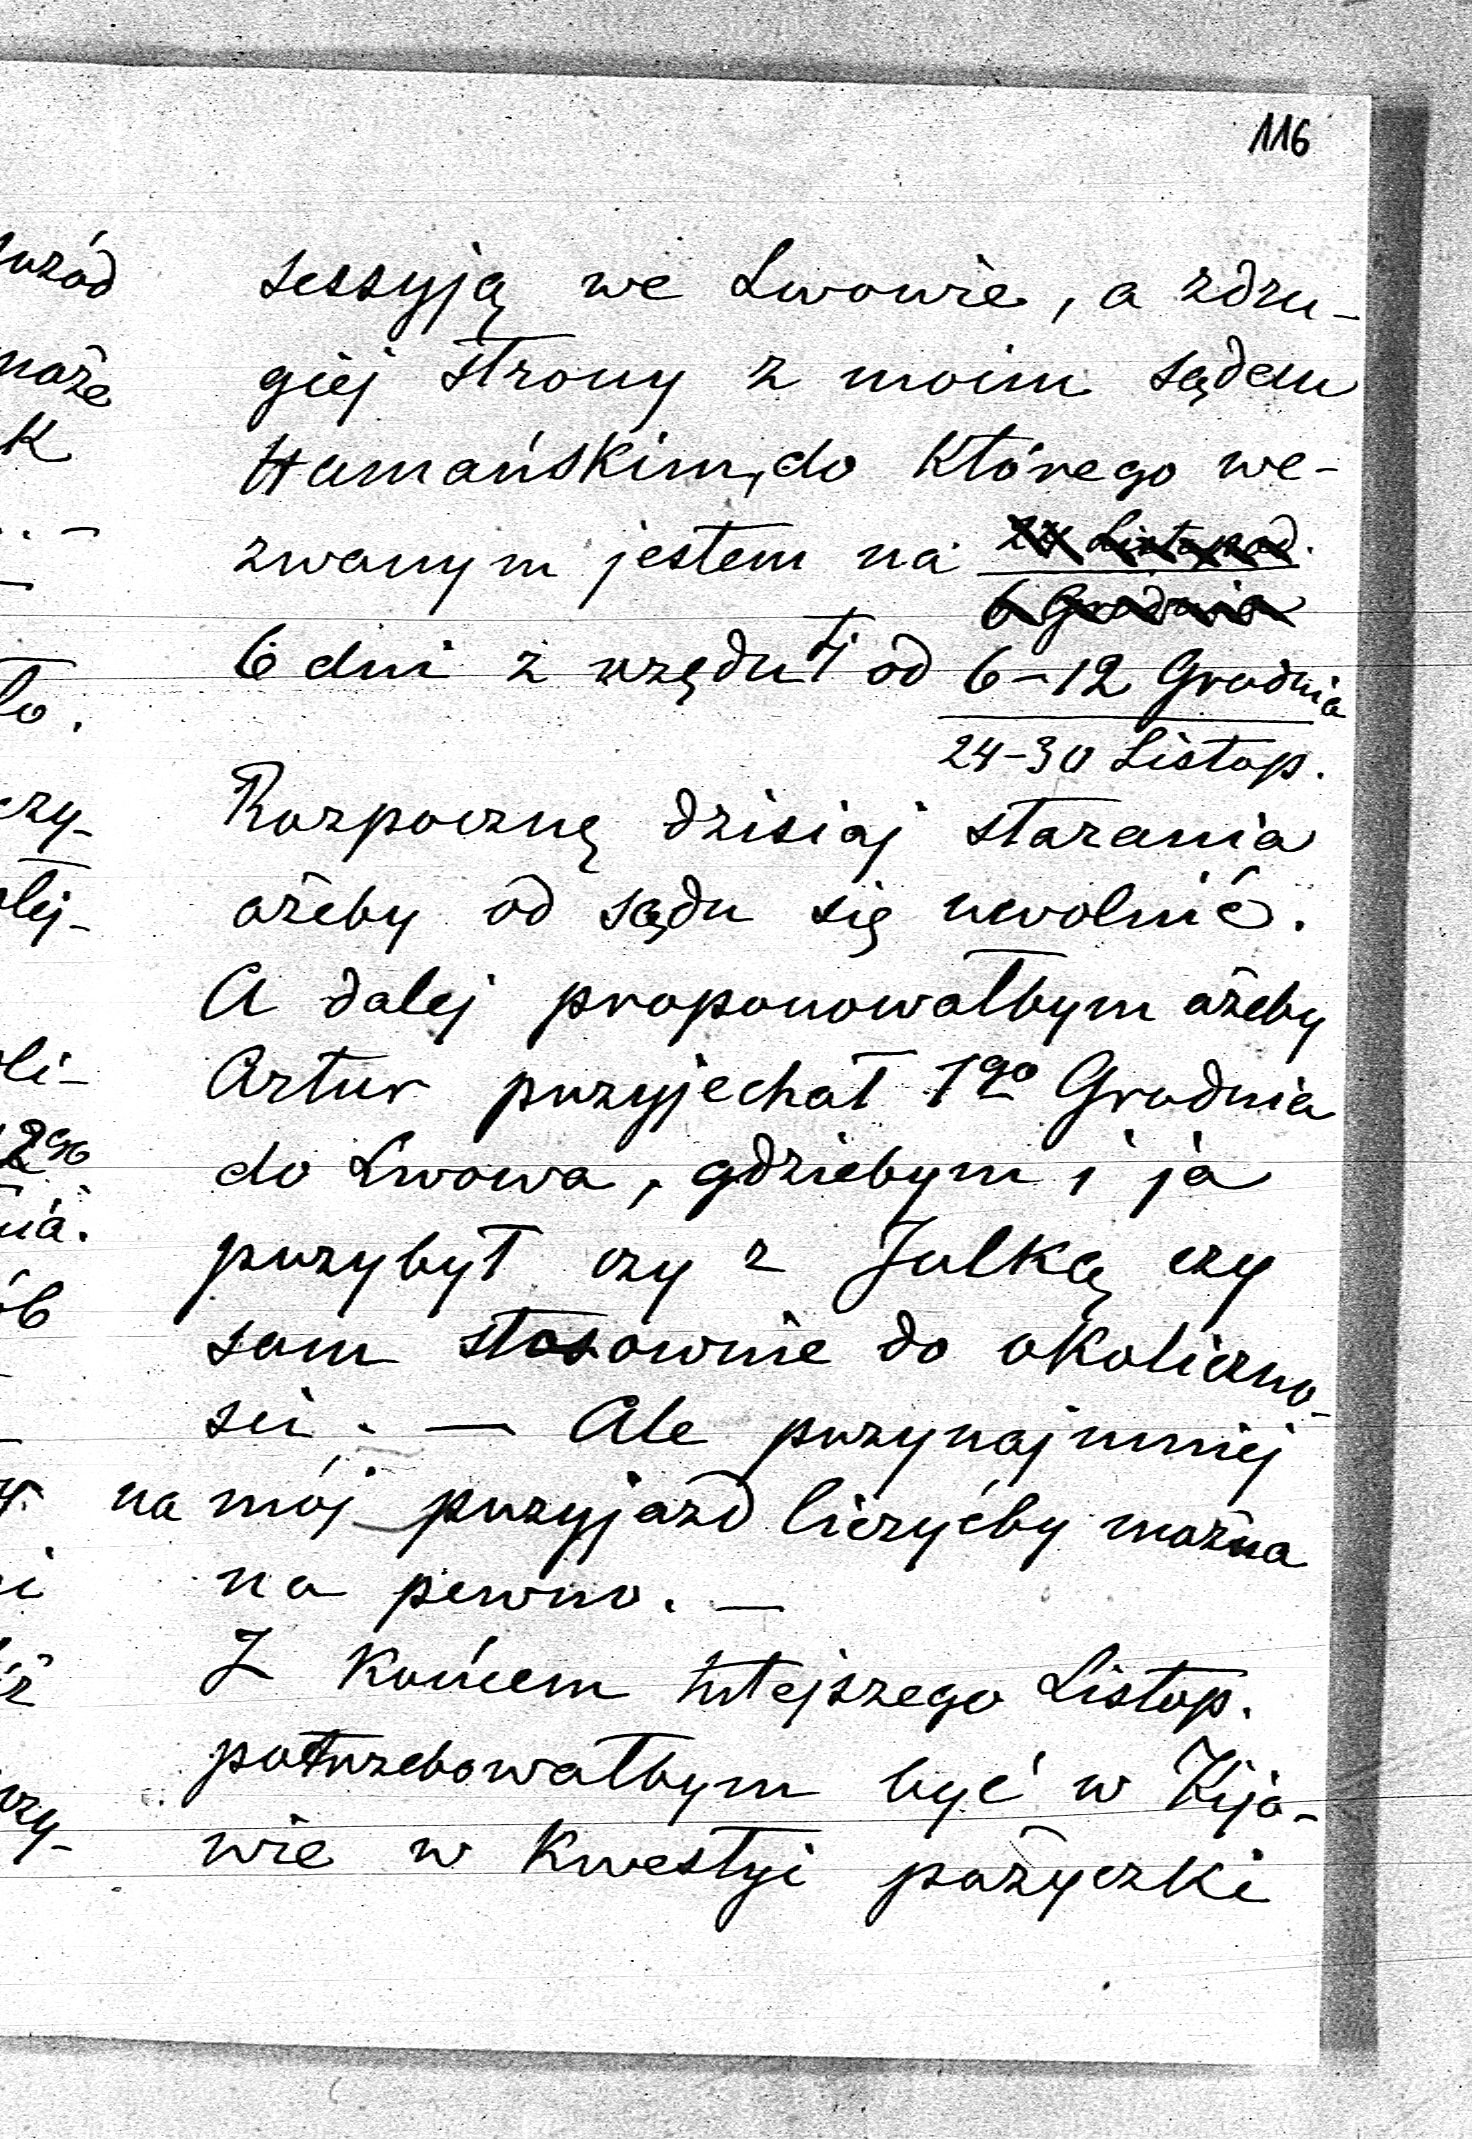 116
sessyją we Lwowie, a zdru-
giej strony z moim sądem
Hamańskim, do którego we-
zwanym jestem na 24 Listopad.
6 Grudnia
6 dni z rzędu tj od 6-12 Grudnia
24-30 Listop.
Rozpocznę dzisiaj starania
ażeby od sądu się uwolnić.
A dalej proponowałbym ażeby
Artur przyjechał 1go Grudnia
do Lwowa, gdziebym i ja
przybył czy z Julką czy
sam stosownie do okoliczno-
ści. — Ale przynajmniej
na mój przyjazd liczyćby można
na pewno. —
Z końcem tutejszego Listop.
potrzebowałbym być w Kijo-
wie w kwestyi pożyczki